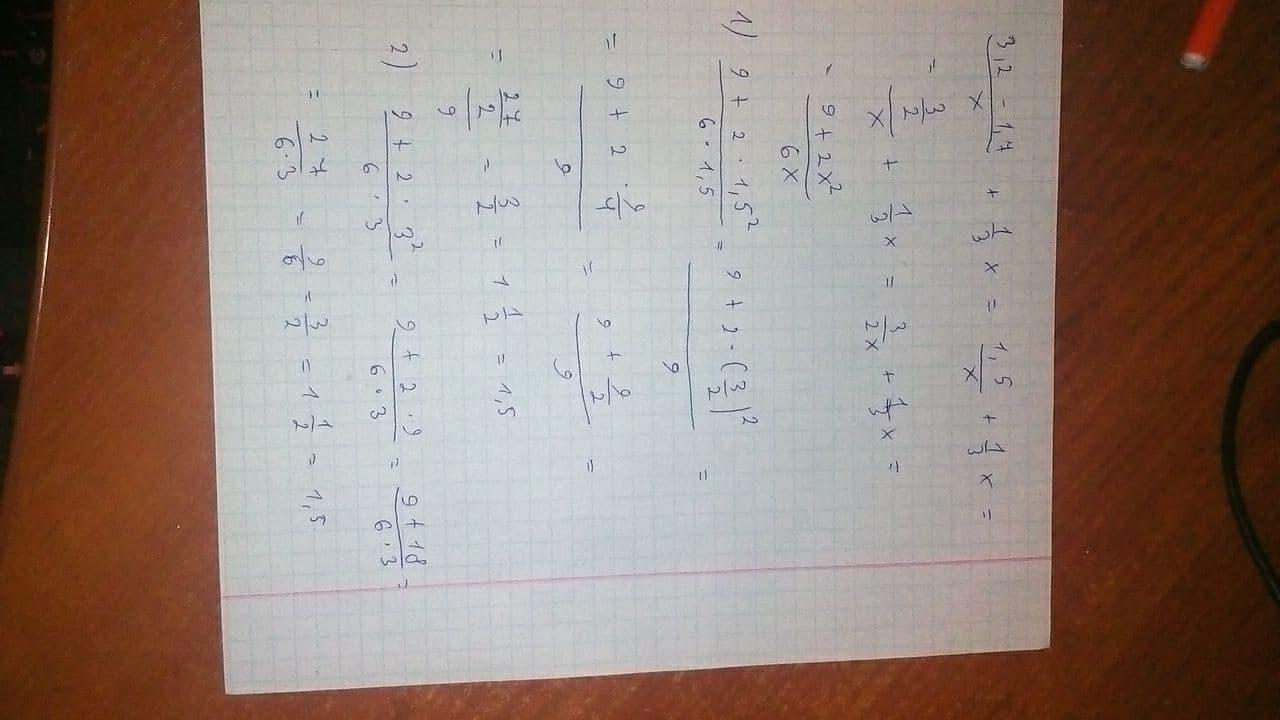 (3,2 - 1,7)/x + 1/3 x = 1,5/x + 1/3 x =
= (3/2)/x + 1/3 x = 3/(2x) + 1/3 x =
= (9 + 2x²)/(6x)
1) (9 + 2 · 1,5²)/(6 · 1,5) = (9 + 2 · (3/2)²)/9 =
= (9 + 2 · 9/4)/9 = (9 + 9/2)/9 =
= (27/2)/9 = 3/2 = 1 1/2 = 1,5
2) (9 + 2 · 3²)/(6 · 3) = (9 + 2 · 9)/(6 · 3) = (9 + 18)/(6 · 3) =
= 27/(6 · 3) = 9/6 = 3/2 = 1 1/2 = 1,5